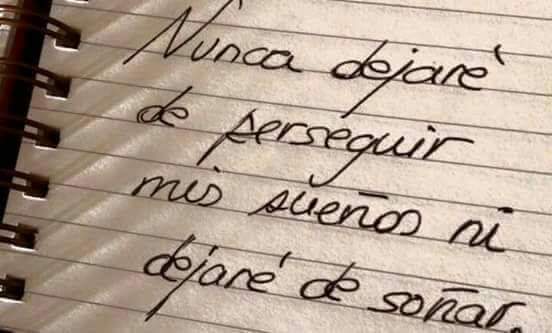 Nunca dejaré
de perseguir
mis sueños ni
dejaré de soñar